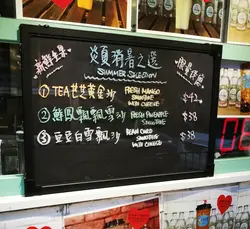 炎夏消暑之選
SUMMER SELECTION
新鮮生果
限量供應
① TEA芒芒黃金沙
FRESH MANGO
SMOOTHIE
WITH CHEESE
$42
② 蘇鳳飄飄雪沙
FRESH PINEAPPLE
SMOOTHIE
$38
③ 豆豆白雪沙
BEAN CURD
SMOOTHIE
WITH CHEESE
$38